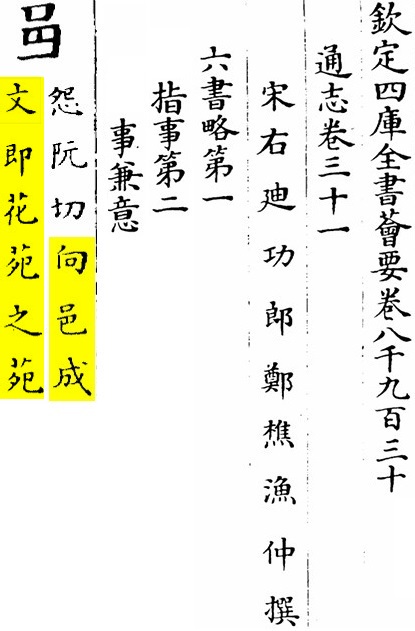 欽定四庫全書薈要卷八千九百三十
通志卷三十一
宋右廸功郎鄭樵漁仲撰
六書略第一
指事第二
事兼意
怨阮切向邑成
文即花苑之苑